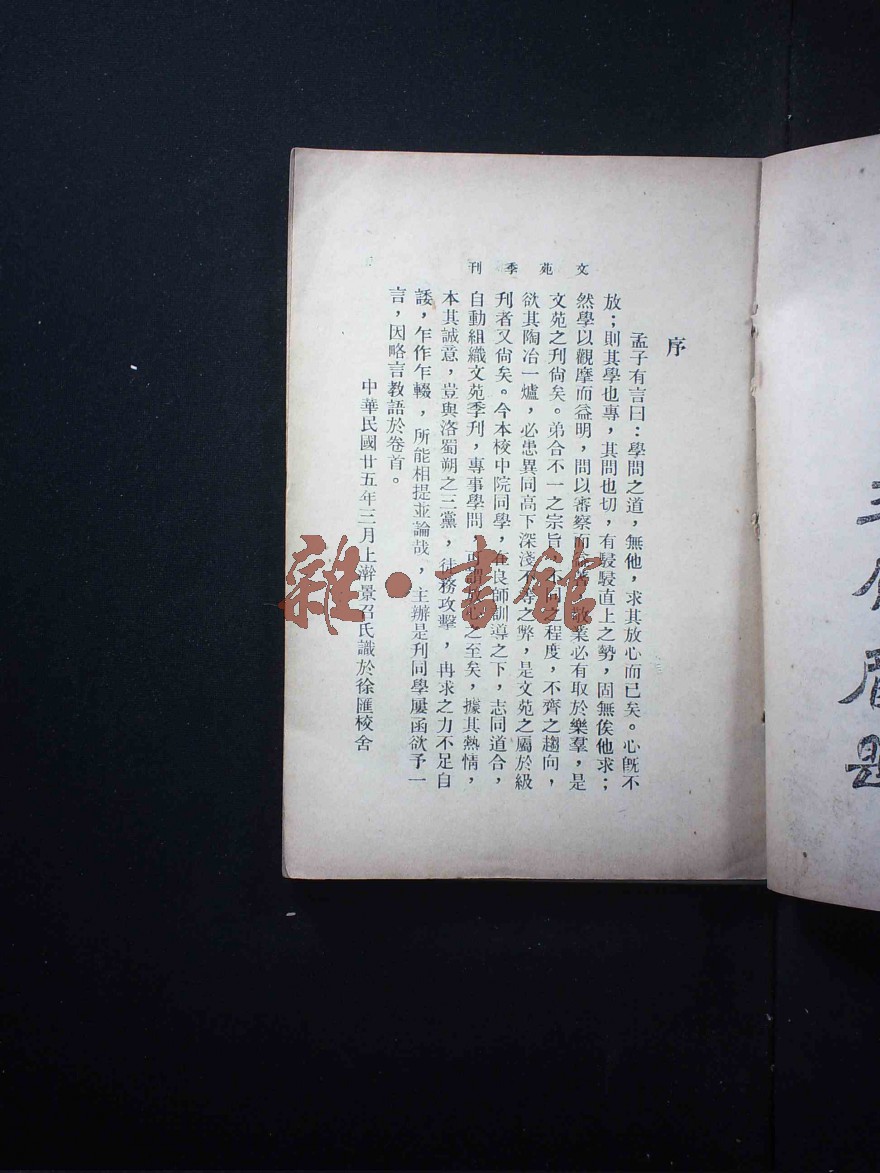 文苑季刊
序
孟子有言曰：學問之道，無他，求其放心而已矣。心旣不
放；則其學也專，其問也切，有駸駸直上之勢，固無俟他求；
然學以觀摩而益明，問以審察而益，敬業必有取於樂羣，是
文苑之刊尙矣。弟合不一之宗旨，不同之程度，不齊之趨向，
欲其陶冶一爐，必患異同高下深淺不之弊，是文苑之屬於級
刊者又尙矣。今本校中院同學，在良師訓導之下，志同道合，
自動組織文苑季刊，專事學問，可謂之至矣，據其熱情，
本其誠意，豈與洛蜀朔之三黨，徒務攻擊，冉求之力不足自
諉，乍作乍輟，所能相提並論哉，主辦是刊同學屢函欲予一
言，因略言教語於卷首。
中華民國廿五年三月上澣景召氏識於徐匯校舍
雜·書館
題